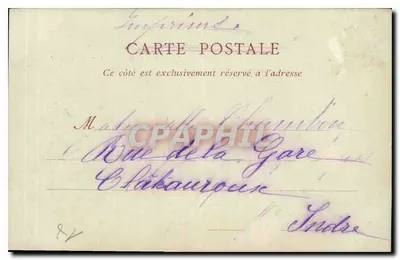 Imprimé.
CARTE POSTALE
Ce côté est exclusivement réservé à l'adresse
M
CPAPHIL
Rue de la Gare
Châteauroux
Indre